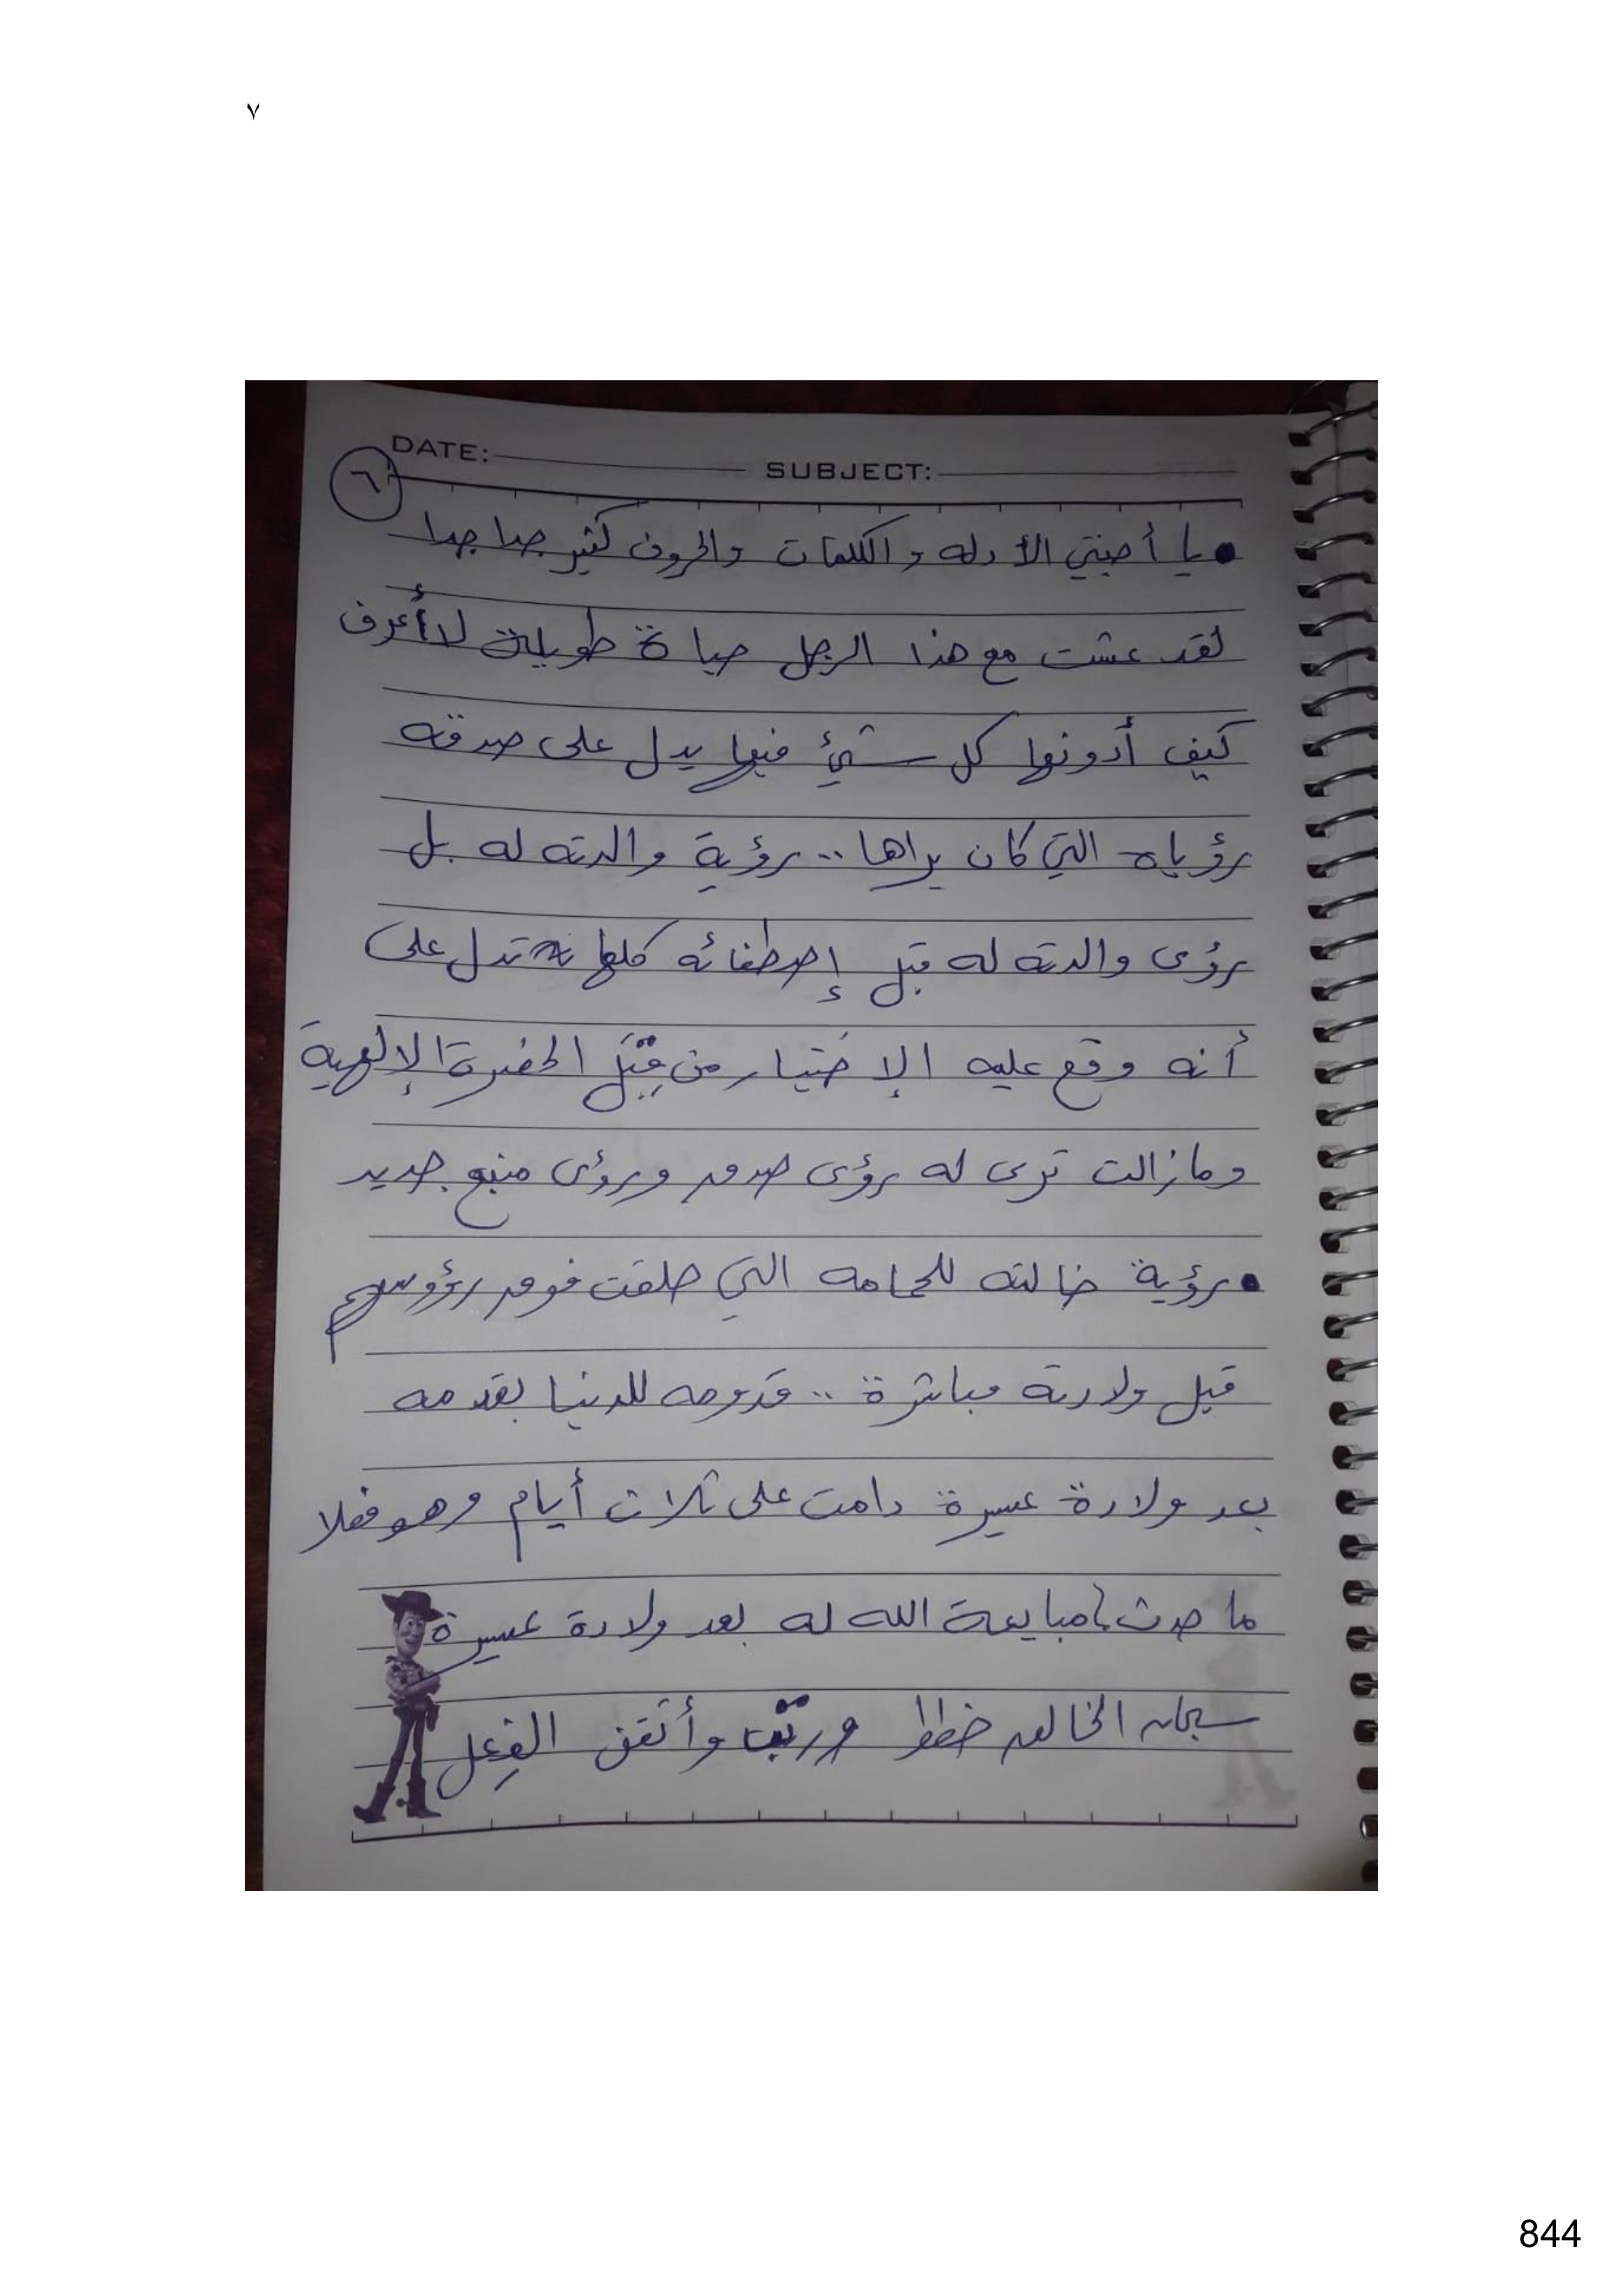 ٧
DATE: SUBJECT:
٦
• يا أحبتي الأدله والكلمات والحروف كثير جدا جدا
لقد عشت مع هذا الرجل حياة طويلة لا أعرف
كيف أدونها كل شيئ فيها يدل على صدقه
رؤياه التي كان يراها .. رؤية والدته له بل
رؤى والدته له قبل إصطفائه كلها تدل على
أنه وقع عليه الإختيار من قِبَل الحضرة الإلهية
ومازالت ترى له رؤى صدق ورؤى منبع جديد
• رؤية خالته للحمامه التي حلقت فوق رؤوسهم
قبل ولادته مباشرة .. قدومه للدنيا بقدمه
بعد ولادة عسيرة دامت على ثلاث أيام وهو فعلا
ما حدث بمبايعة الله له بعد ولادة عسيرة
سبحان الخالق خطط ورتّب وأتقن الفِعل
844